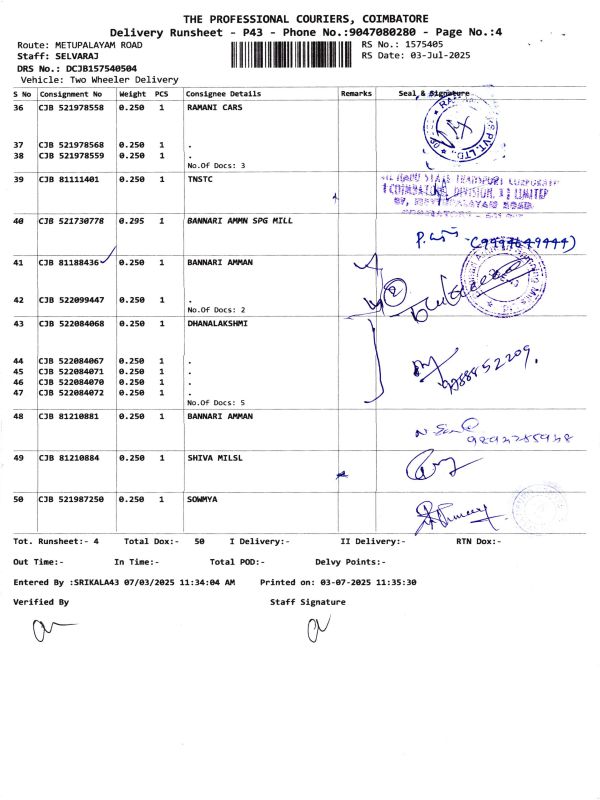 THE PROFESSIONAL COURIERS, COIMBATORE
Delivery Runsheet - P43 - Phone No.:9047080280 - Page No.:4
Route: METUPALAYAM ROAD
RS No.: 1575405
Staff: SELVARAJ
RS Date: 03-Jul-2025
DRS No.: DCJB157540504
Vehicle: Two Wheeler Delivery
S No Consignment No Weight PCS Consignee Details Remarks Seal & Signature
36 CJB 521978558 0.250 1 RAMANI CARS
37 CJB 521978568 0.250 1 .
38 CJB 521978559 0.250 1 .
No.Of Docs: 3
39 CJB 81111401 0.250 1 TNSTC
40 CJB 521730778 0.295 1 BANNARI AMMN SPG MILL
41 CJB 81188436 0.250 1 BANNARI AMMAN
42 CJB 522099447 0.250 1 .
No.Of Docs: 2
43 CJB 522084068 0.250 1 DHANALAKSHMI
44 CJB 522084067 0.250 1 .
45 CJB 522084071 0.250 1 .
46 CJB 522084070 0.250 1 .
47 CJB 522084072 0.250 1 .
No.Of Docs: 5
48 CJB 81210881 0.250 1 BANNARI AMMAN
49 CJB 81210884 0.250 1 SHIVA MILSL
50 CJB 521987250 0.250 1 SOWMYA
Tot. Runsheet:- 4 Total Dox:- 50 I Delivery:- II Delivery:- RTN Dox:-
Out Time:- In Time:- Total POD:- Delvy Points:-
Entered By :SRIKALA43 07/03/2025 11:34:04 AM Printed on: 03-07-2025 11:35:30
Verified By Staff Signature